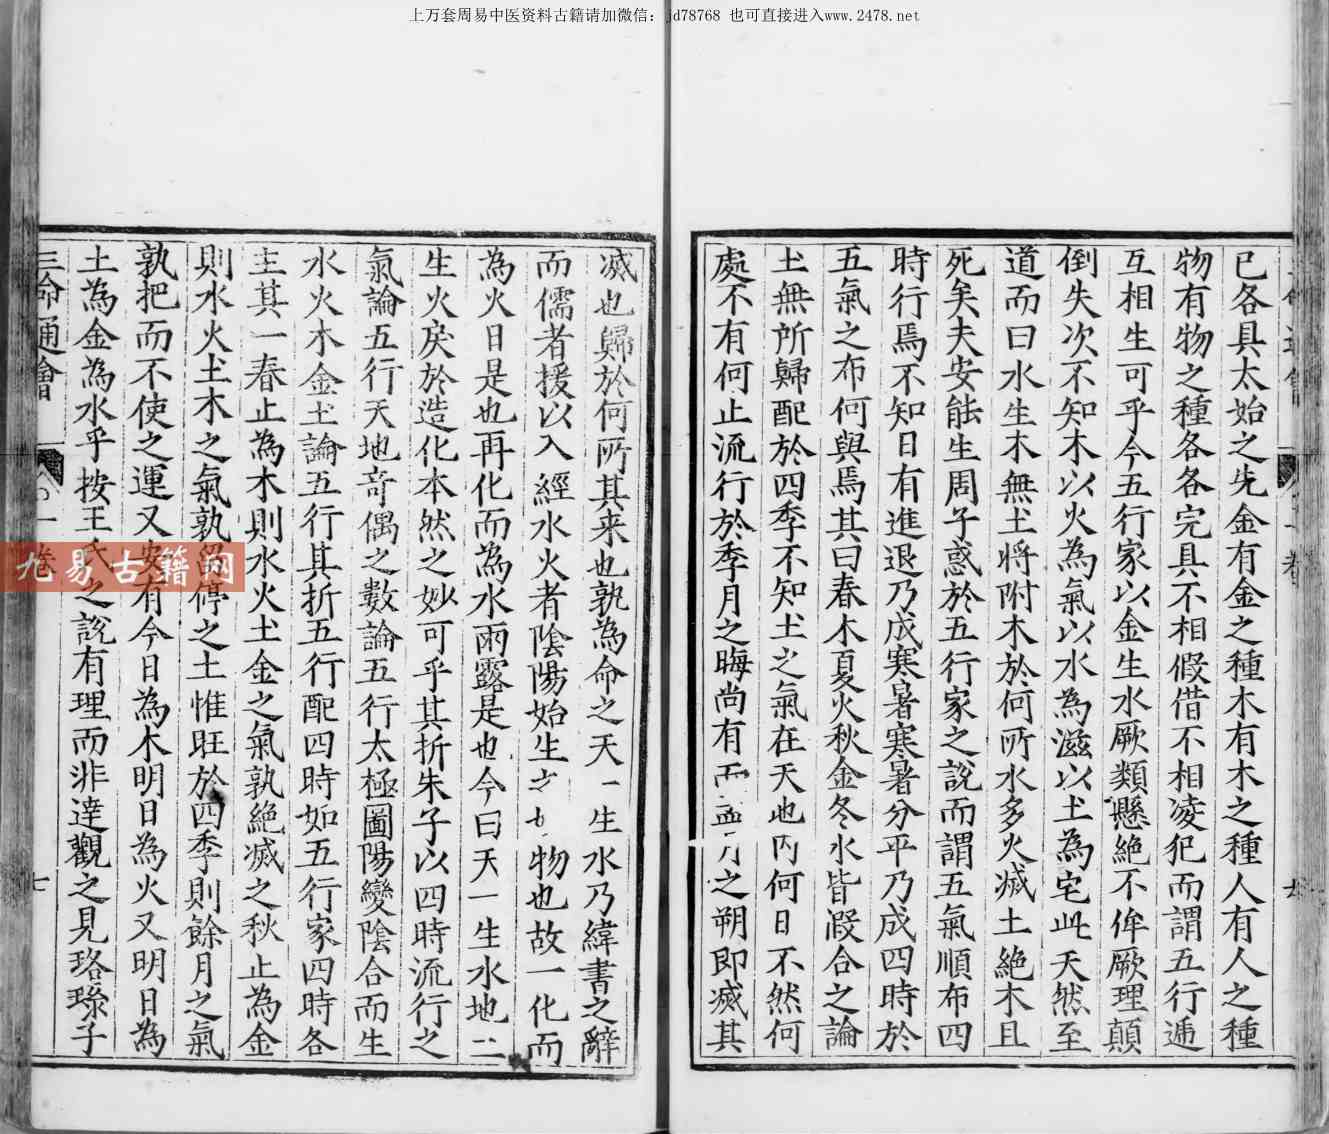 上万套周易中医资料古籍请加微信：jd78768 也可直接进入www.2478.net
已各具太始之先金有金之種木有木之種人有人之種
物有物之種各各完具不相假借不相凌犯而謂五行逓
互相生可乎今五行家以金生水厥類懸絶不侔厥理顛
倒失次不知木以火為氣以水為滋以土為宅此天然至
道而曰水生木無土將附木於何所水多火滅土絶木且
死矣夫安能生周子惑於五行家之說而謂五氣順布四
時行焉不知日有進退乃成寒暑寒暑分平乃成四時於
五氣之布何與焉其曰春木夏火秋金冬水皆假合之論
土無所歸配於四季不知土之氣在天地內何日不然何
處不有何止流行於季月之晦尚有而孟月之朔即滅其
滅也歸於何所其来也孰為命之天一生水乃緯書之辭
而儒者援以入經水火者陰陽始生之物也故一化而
為火日是也再化而為水雨露是也今曰天一生水地二
生火戾於造化本然之妙可乎其折朱子以四時流行之
氣論五行天地竒偶之數論五行太極圖陽變陰合而生
水火木金土論五行其折五行配四時如五行家四時各
主其一春止為木則水火土金之氣孰絶滅之秋止為金
則水火土木之氣孰留停之土惟旺於四季則餘月之氣
孰把而不使之運又安有今日為木明日為火又明日為
土為金為水乎按王氏之說有理而非達觀之見珞琭子
三命通會 卷一 七
九易古籍网